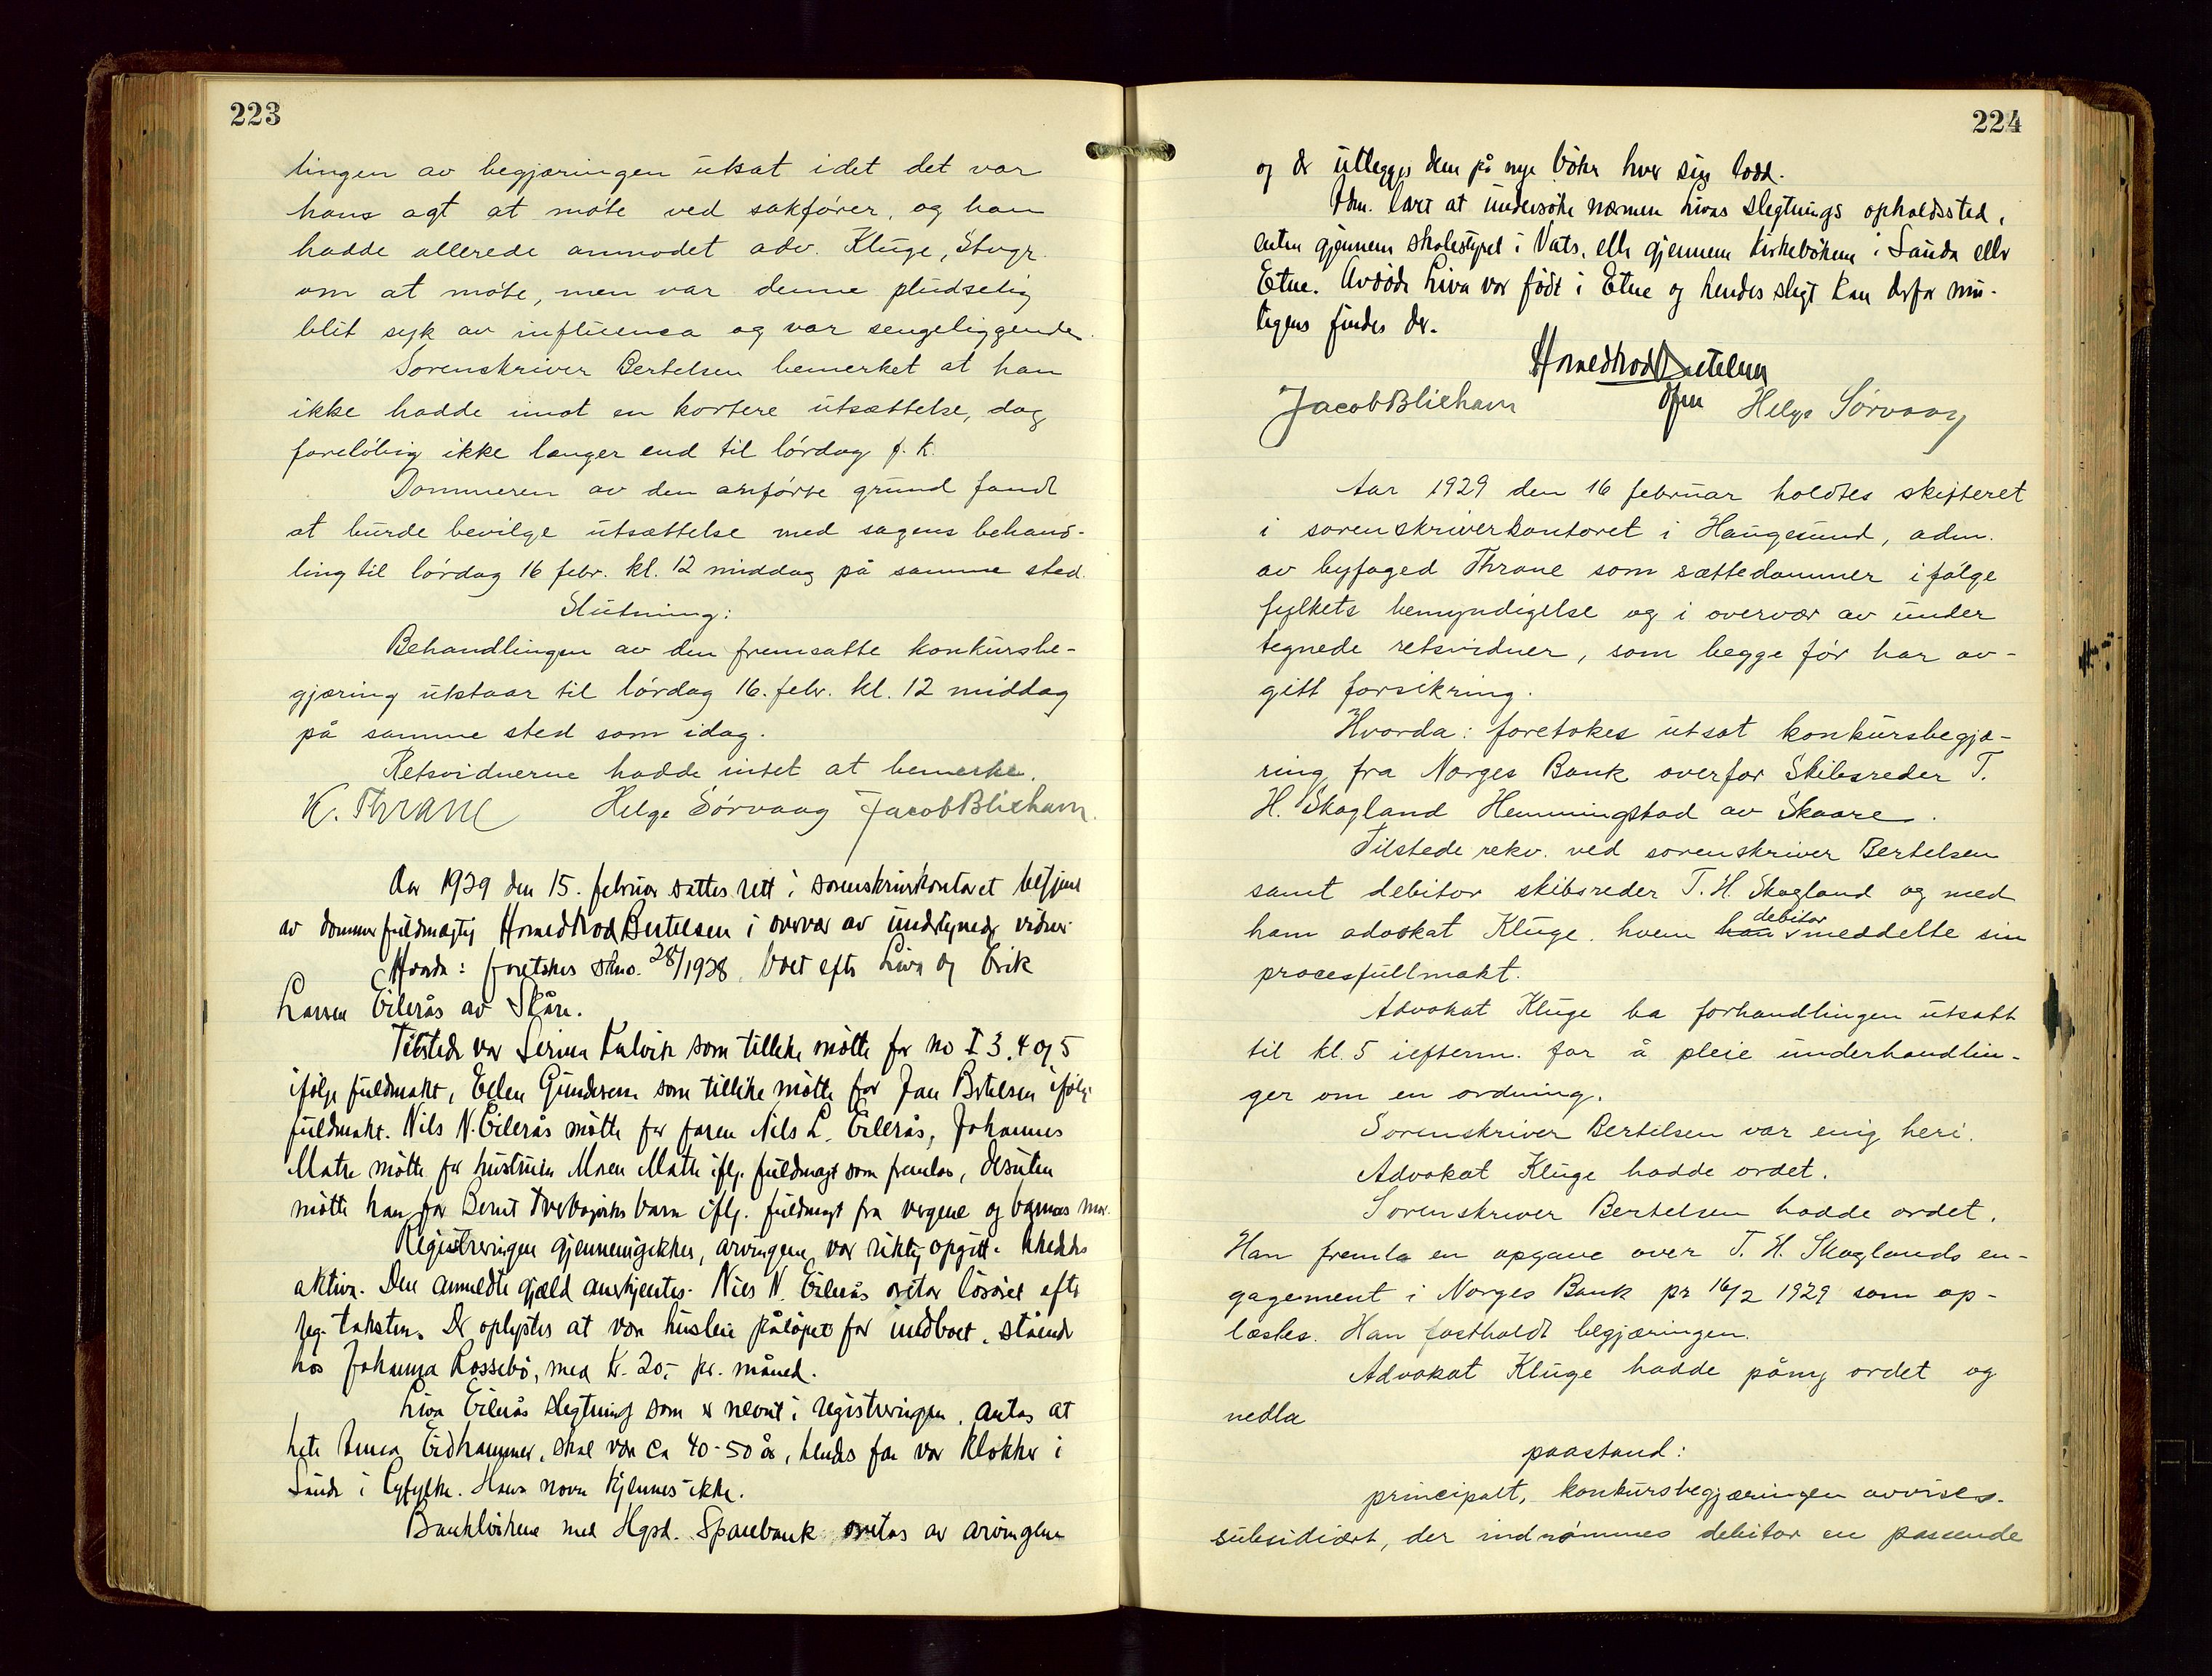 223
lingen av begjæringen utsat idet det var
hans agt at møte ved sakfører, og han
hadde allerede anmodet adv. Kluge, Stvgr.
om at møte, men var denne pludselig
blit syk av influensa og var sengeliggende.
Sorenskriver Bertelsen bemerket at han
ikke hadde imot en kortere utsættelse, dog
foreløbig ikke længer end til lørdag f. k.
Dommeren av den anførte grund fandt
at burde bevilge utsættelse med sagens behand-
ling til lørdag 16 febr. kl. 12 middag på samme sted.
Slutning:
Behandlingen av den fremsatte konkursbe-
gjæring utstaar til lørdag 16. febr. kl. 12 middag
på samme sted som idag.
Retsvidnerne hadde intet at bemerke.
K. Thrane Helge Sørvaag Jacob Blixhavn.
Aar 1929 den 15. februar sattes rett i sorenskriverkontoret betjent
av dommerfuldmægtig Homedtvod Bertelsen i overvær av undertegnede vidner
Hvorda: foretokes skno. 28/1928, boet efter Liva og Erik
Larsen Eilerås av Skåre.
Tilstede var Serina Kalvik som tillike møtte for no I 3, 4 og 5
ifølge fuldmakt, Ellen Gundersen som tillike møtte for Jan Bertelsen ifølge
fuldmakt. Nils N. Eilerås møtte for faren Nils L. Eilerås, Johannes
Matre møtte for hustruen Maren Matre iflg. fuldmagt som fremlas, desuten
møtte han for Bernt barn iflg. fuldmagt fra vergene og barnas mor.
Registreringen gjennemgikkes, arvingene var riktig opgitt. likeledes
aktiva. Den anmeldte gjæld anerkjentes. Nils N. Eilerås overtar løsøret efter
reg. taksten. Der oplystes at var husleie påløpet for indboet, stående
hos Johanna Rossebø, med kr. 20,- pr. måned.
Liva Eilerås slegtning som er nevnt i registreringen, antas at
hete Anna Eidhammer, skal være ca 40-50 år, hendes far var klokker i
Sauda i Ryfylke. Hans navn kjennes ikke.
Bankbøkene med Hgsd. Sparebank overtas av arvingene
224
og der utlegges dem på nye bøker hver sin lodd.
Adm. lovet at undersøke nærmere Livas slegtnings opholdssted,
enten gjennem skolestyret i Vats, eller gjennem kirkebøkene i Sauda eller
Etne. Avdøde Liva var født i Etne og hendes slegt kan derfor mu-
ligens findes der.
Homedtvod Bertelsen
Jacob Blixhavn dfm Helge Sørvaag
Aar 1929 den 16 februar holdtes skifteret
i sorenskriverkontoret i Haugesund, adm.
av byfoged Thrane som sættedommer ifølge
fylkets bemyndigelse og i overvær av under
tegnede retsvidner, som begge før har av-
gitt forsikring.
Hvorda: foretokes utsat konkursbegjæ-
ring fra Norges Bank overfor Skibsreder T.
H. Skogland Hemmingstad av Skaare.
Tilstede rekv. ved sorenskriver Bertelsen
samt debitor skibsreder T. H. Skogland og med
ham advokat Kluge. hvem han debitor meddelte sin
procesfullmakt.
Advokat Kluge ba forhandlingen utsatt
til kl. 5 iefterm. for å pleie underhandlin-
ger om en ordning.
Sorenskriver Bertelsen var enig heri.
Advokat Kluge hadde ordet.
Sorenskriver Bertelsen hadde ordet.
Han fremla en opgave over T. H. Skoglands en-
gagement i Norges Bank pr 16/2 1929 som op-
læstes. Han fastholdt begjæringen.
Advokat Kluge hadde påny ordet og
nedla
paastand:
principalt, konkursbegjæringen avvises.
subsidiært, der indrømmes debitor en passende